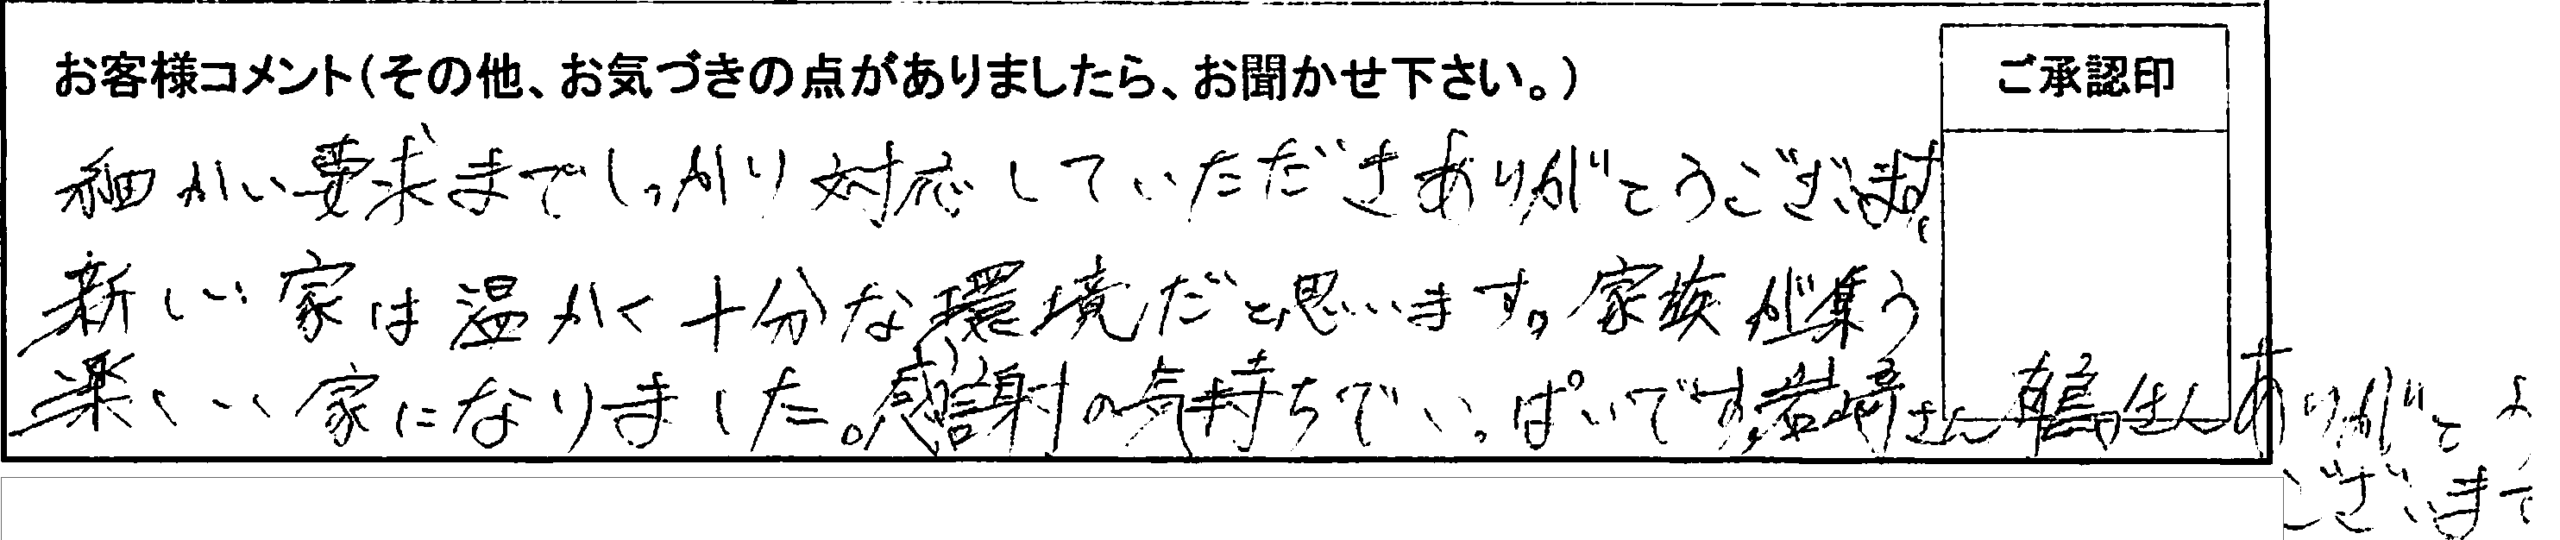 お客様コメント(その他、お気づきの点がありましたら、お聞かせ下さい。)
ご承認印
細かい要求までしっかり対応していただきありがとうございます。
新しい家は温かく十分な環境だと思います。家族が集う
楽しい家になりました。感謝の気持ちでいっぱいです。岩崎さん さんありがとう
ございます